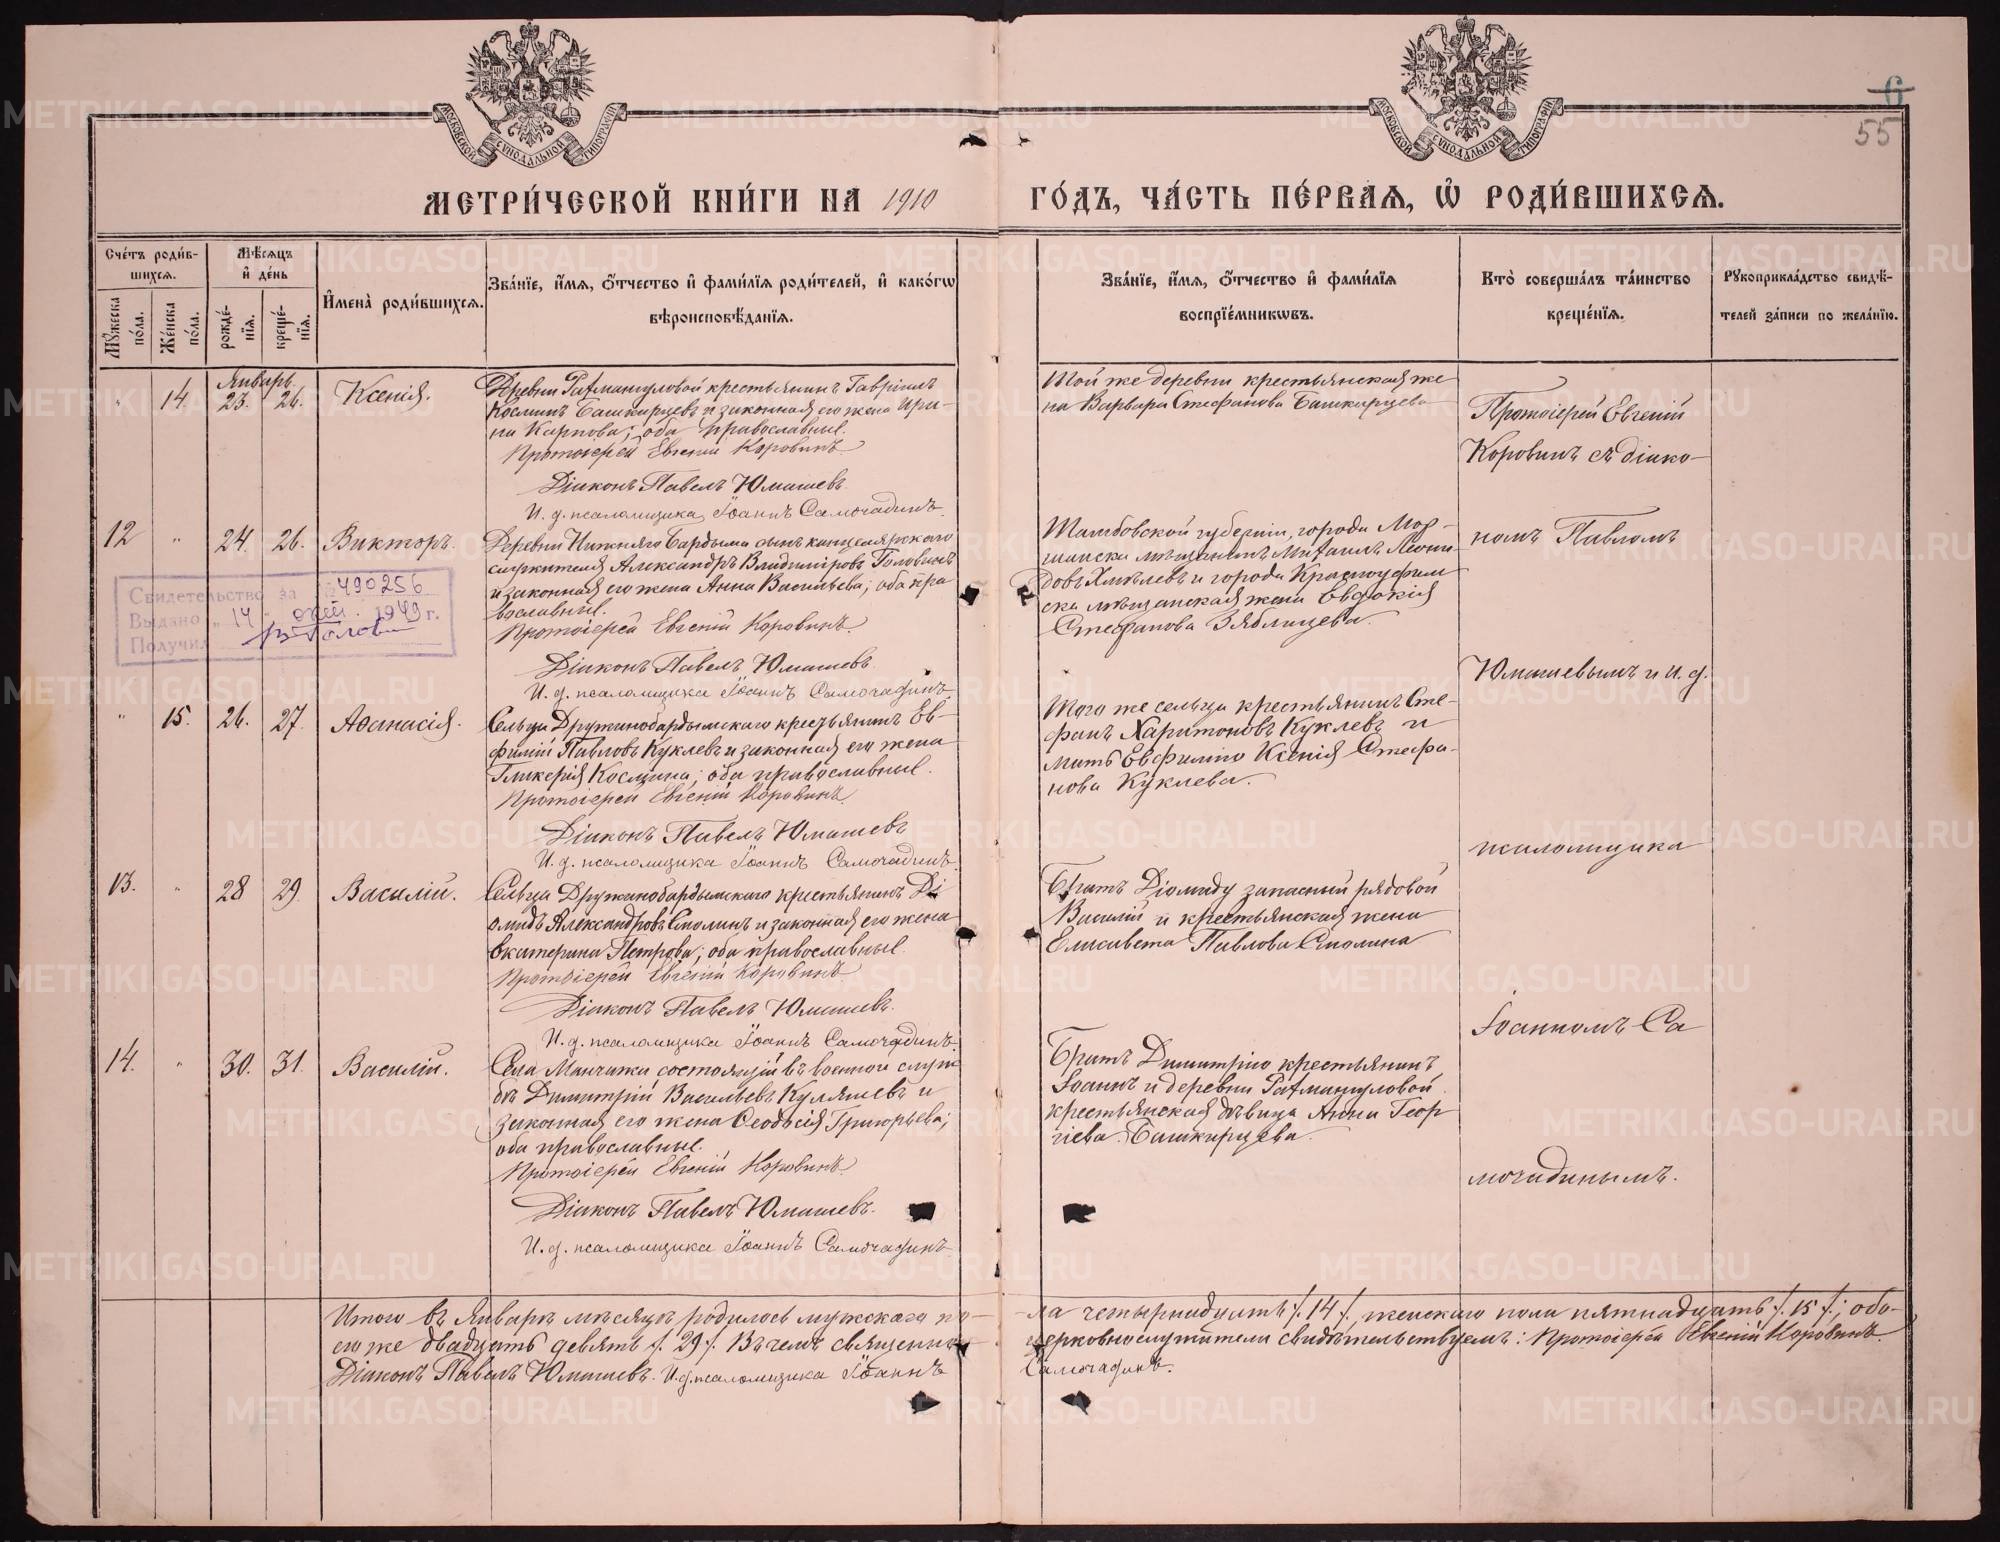 МОСКОВСКОЙ СУНОДАЛЬНОЙ ТИПОГРАФІИ
МОСКОВСКОЙ СУНОДАЛЬНОЙ ТИПОГРАФІИ
6
55
МЕТРИ́ЧЕСКОЙ КНИ́ГИ НА 1910 ГО́ДЪ, ЧА́СТЬ ПЕ́РВАѦ, Ѽ РОДИ́ВШИХСѦ.
Сче́тъ роди́в-
шихсѧ.
Мꙋжеска по́ла.
Же́нска по́ла.
Мѣ́сѧцъ
и҆ де́нь
рожде́-нїѧ.
креще́-нїѧ.
И҆мена̀ роди́вшихсѧ.
Зва́нїе, и҆́мѧ, ѻ҆́тчество и҆ фами́лїѧ роди́телей, и҆ како́гѡ
вѣроисповѣ́данїѧ.
Зва́нїе, и҆́мѧ, ѻ҆́тчество и҆ фами́лїѧ
воспрїе́мникѡвъ.
Кто̀ соверша́лъ та́инство
креще́нїѧ.
Рꙋкоприкла́дство свидѣ́-
телей за́писи по жела́нїю.
Январь.
" 14. 23. 26. Ксенія.
Деревни Рахмангуловой крестьянинъ Гавріилъ
Космин Башкирцевъ и законная его жена Ири-
на Карпова; оба православные.
Протоіерей Евгеній Коровинъ
Діаконъ Павелъ Юмашевъ
И. д. псаломщика Іоаннъ Самочадинъ
Той же деревни крестьянская же
на Варвара Стефанова Башкирцева
Протоіерей Евгеній
Коровинъ съ діако-
номъ Павломъ
Юмашевымъ и и. д.
псаломщика
Іоанномъ Са
мочадинымъ.
12 " 24. 26. Викторъ.
Деревни Нижняго Бардыма сынъ канцелярскаго
служителя Александръ Владиміровъ Головинъ
и законная его жена Анна Васильева; оба пра
вославные.
Протоіерей Евгеній Коровинъ
Діаконъ Павелъ Юмашевъ
И. д. псаломщика Іоаннъ Самочадинъ
Тамбовской губерніи, города Мор-
шанска мѣщанинъ Михаилъ Леони-
довъ Хмѣлевъ и города Красноуфим
ска мѣщанская жена Евдокія
Стефанова Зяблицева.
Свидетельство за № 490256
Выдано „ 14 " 1949 г.
Получил
" 15. 26. 27. Аѳанасія.
Сельца Дружинобардымскаго крестьянинъ Ев-
фимій Павловъ Куклевъ и законная его жена
Гликерія Космина; оба православные.
Протоіерей Евгеній Коровинъ
Діаконъ Павелъ Юмашевъ
И. д. псаломщика Іоаннъ Самочадинъ
Того же сельца крестьянинъ Сте-
фанъ Харитоновъ Куклевъ и
мать Евфимію Ксенія Стефа-
нова Куклева.
13. " 28 29. Василій.
Сельца Дружинобардымскаго крестьянинъ Ді
омидъ Александровъ Смолинъ и законная его жена
Екатерина Петрова; оба православные
Протоіерей Евгеній Коровинъ
Діаконъ Павелъ Юмашевъ.
И. д. псаломщика Іоаннъ Самочадинъ.
Братъ Діомиду запасный рядовой
Василій и крестьянская жена
Елисавета Павлова Смолина
14. " 30. 31. Василій.
Села Манчажи состоящій въ военной служ
бѣ Димитрій Васильевъ Куляшевъ и
законная его жена Ѳеодосія Григорьева;
оба православные.
Протоіерей Евгеній Коровинъ
Діаконъ Павелъ Юмашевъ.
И. д. псаломщика Іоаннъ Самочадинъ
Братъ Димитрію крестьянинъ
Іоаннъ и деревни Рахмангуловой
крестьянская дѣвица Анна Геор
гіева Башкирцева.
Итого въ Январѣ мѣсяцѣ родилось мужскаго по-ла четырнадцать /. 14 /., женскаго пола пятнадцать /. 15 /.; обо-
его же двадцать девять /. 29 /. Въ чемъ священно-церковнослужители свидѣтельствуемъ: Протоіерей Евгеній Коровинъ.
Діаконъ Павелъ Юмашевъ. И. д. псаломщика Іоаннъ Самочадинъ.
METRIKI.GASO-URAL.RU